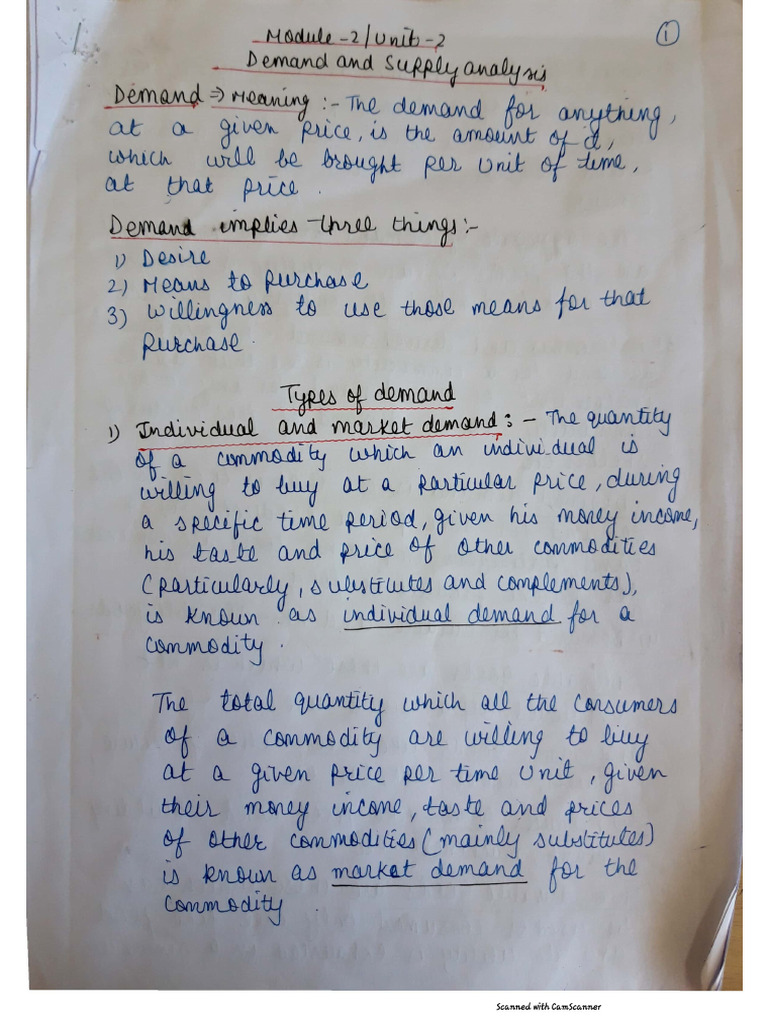 ①
Module-2/Unit-2
Demand and Supply analysis
Demand ⇒ Meaning :- The demand for anything,
at a given price, is the amount of it,
which will be brought per unit of time,
at that price.
Demand implies three things:-
1) Desire
2) Means to purchase
3) Willingness to use those means for that
purchase.
Types of demand
1) Individual and market demand: - The quantity
of a commodity which an individual is
willing to buy at a particular price, during
a specific time period, given his money income,
his taste and price of other commodities
(particularly, substitutes and complements),
is known as individual demand for a
commodity.
The total quantity which all the consumers
of a commodity are willing to buy
at a given price per time unit, given
their money income, taste and prices
of other commodities (mainly substitutes)
is known as market demand for the
commodity
Scanned with CamScanner